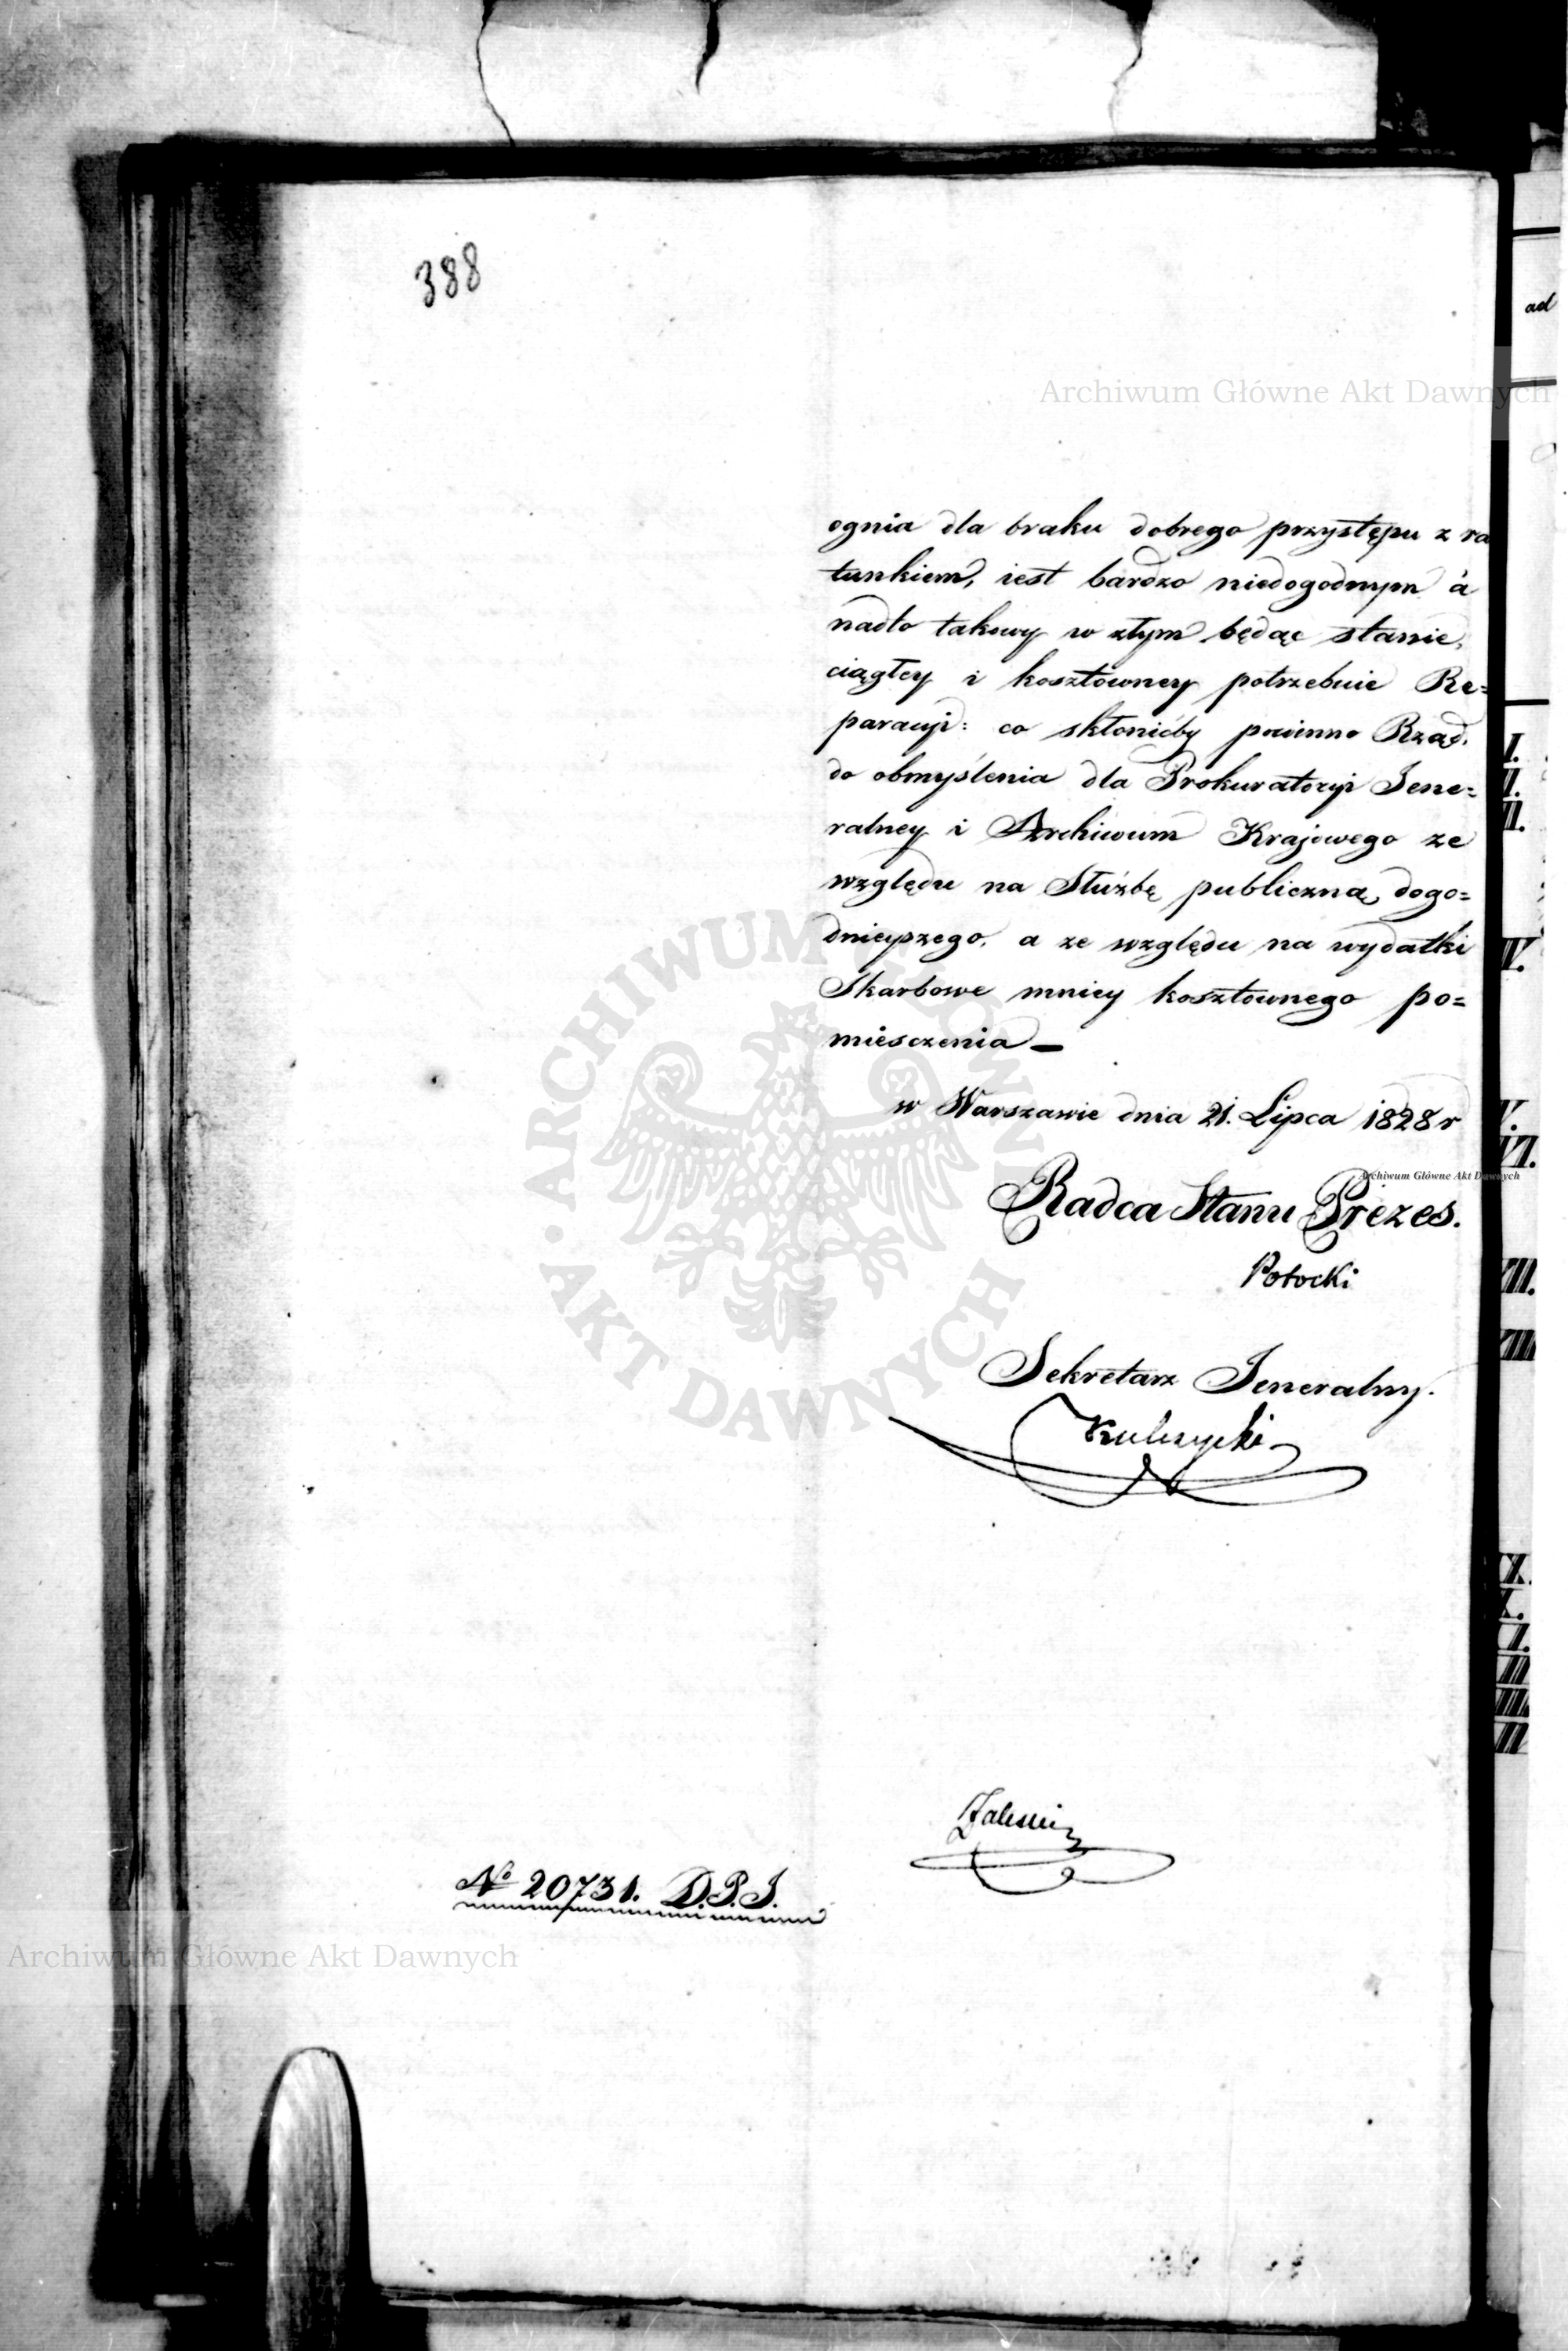 388
ad
Archiwum Główne Akt Dawnych
ognia dla braku dobrego przystępu z ra
tunkiem, iest bardzo niedogodnym à
nadto takowy w złym będąc stanie,
ciągłey i kosztowney potrzebuie Re=
paracyi: co skłonićby powinno Rząd,
do obmyślenia dla Prokuratoryi Jene=
ralney i Archiwum Krajowego ze
względu na Służbę publiczną, dogo=
dnieyszego, a ze względu na wydatki
Skarbowe mniey kosztownego po=
miesczenia —
w Warszawie dnia 21. Lipca 1828 r
Archiwum Główne Akt Dawnych
Radca Stanu Prezes.
Potocki
Sekretarz Jeneralny.
Kulczycki
№ 20731. D.P.J.
Archiwum Główne Akt Dawnych
ARCHIWUM GŁÓWNE • AKT DAWNYCH